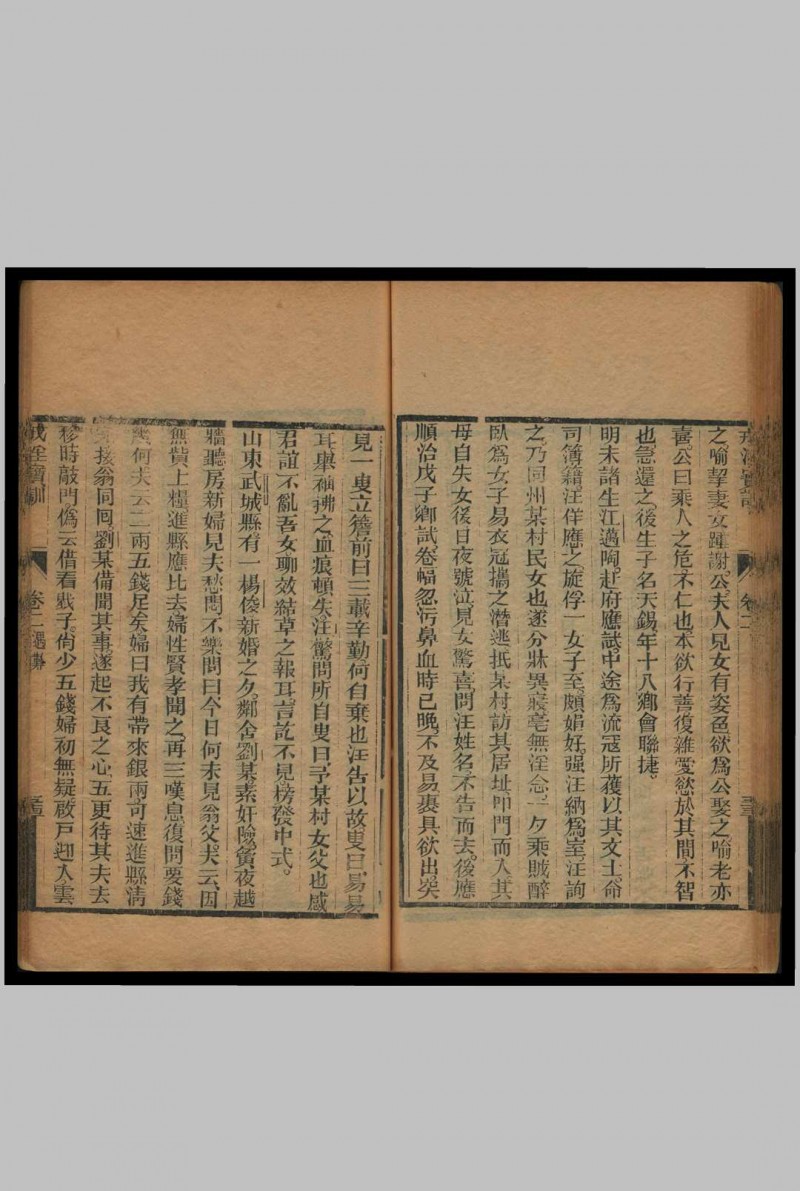 之喻挈妻女踵謝公夫人見女有姿色欲爲公娶之喻老亦
喜公曰乘人之危不仁也本欲行善復雜愛慾於其間不智
也急還之後生子名天錫年十八鄉會聯捷。
明末諸生江邁陶赴府應試中途爲流寇所獲以其文士命
司簿籍汪佯應之旋俘一女子至頗娟好强汪納爲室汪詢
之乃同州某村民女也遂分牀異寢毫無淫念一夕乘賊醉
臥爲女子易衣冠攜之潛逃抵某村訪其居址叩門而入其
母自失女後日夜號泣見女驚喜問汪姓名不告而去後應
順治戊子鄉試卷幅忽污鼻血時已晚不及易裹具欲出突
見一叟立簷前曰三載辛勤何自棄也汪告以故叟曰易易
耳舉袖拂之血痕頓失汪驚問所自叟曰予某村女父也感
君誼不亂吾女聊效結草之報耳言訖不見榜發中式。
山東武城縣有一楊俊新婚之夕鄰舍劉某素奸險黃夜越
牆聽房新婦見夫愁悶不樂問曰今日何未見翁父夫云因
無貲上糧進縣應比去婦性賢孝聞之再三嘆息復問要錢
何夫云二兩五錢足矣婦曰我有帶來銀兩可速進縣清
接翁同回劉某備聞其事遂起不良之心五更待其夫去
移時敲門僞云借看戥子尙少五錢婦初無疑啟戶迎入雲
戒淫寶訓
卷二